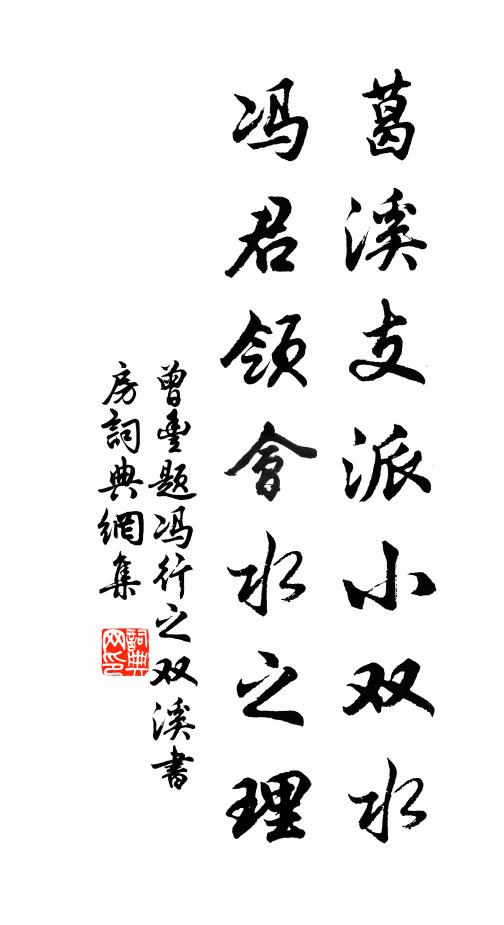 葛溪支派小双水
冯君领會水之理
曾豊题冯行之双溪書
房詞典網集
詞典
网印